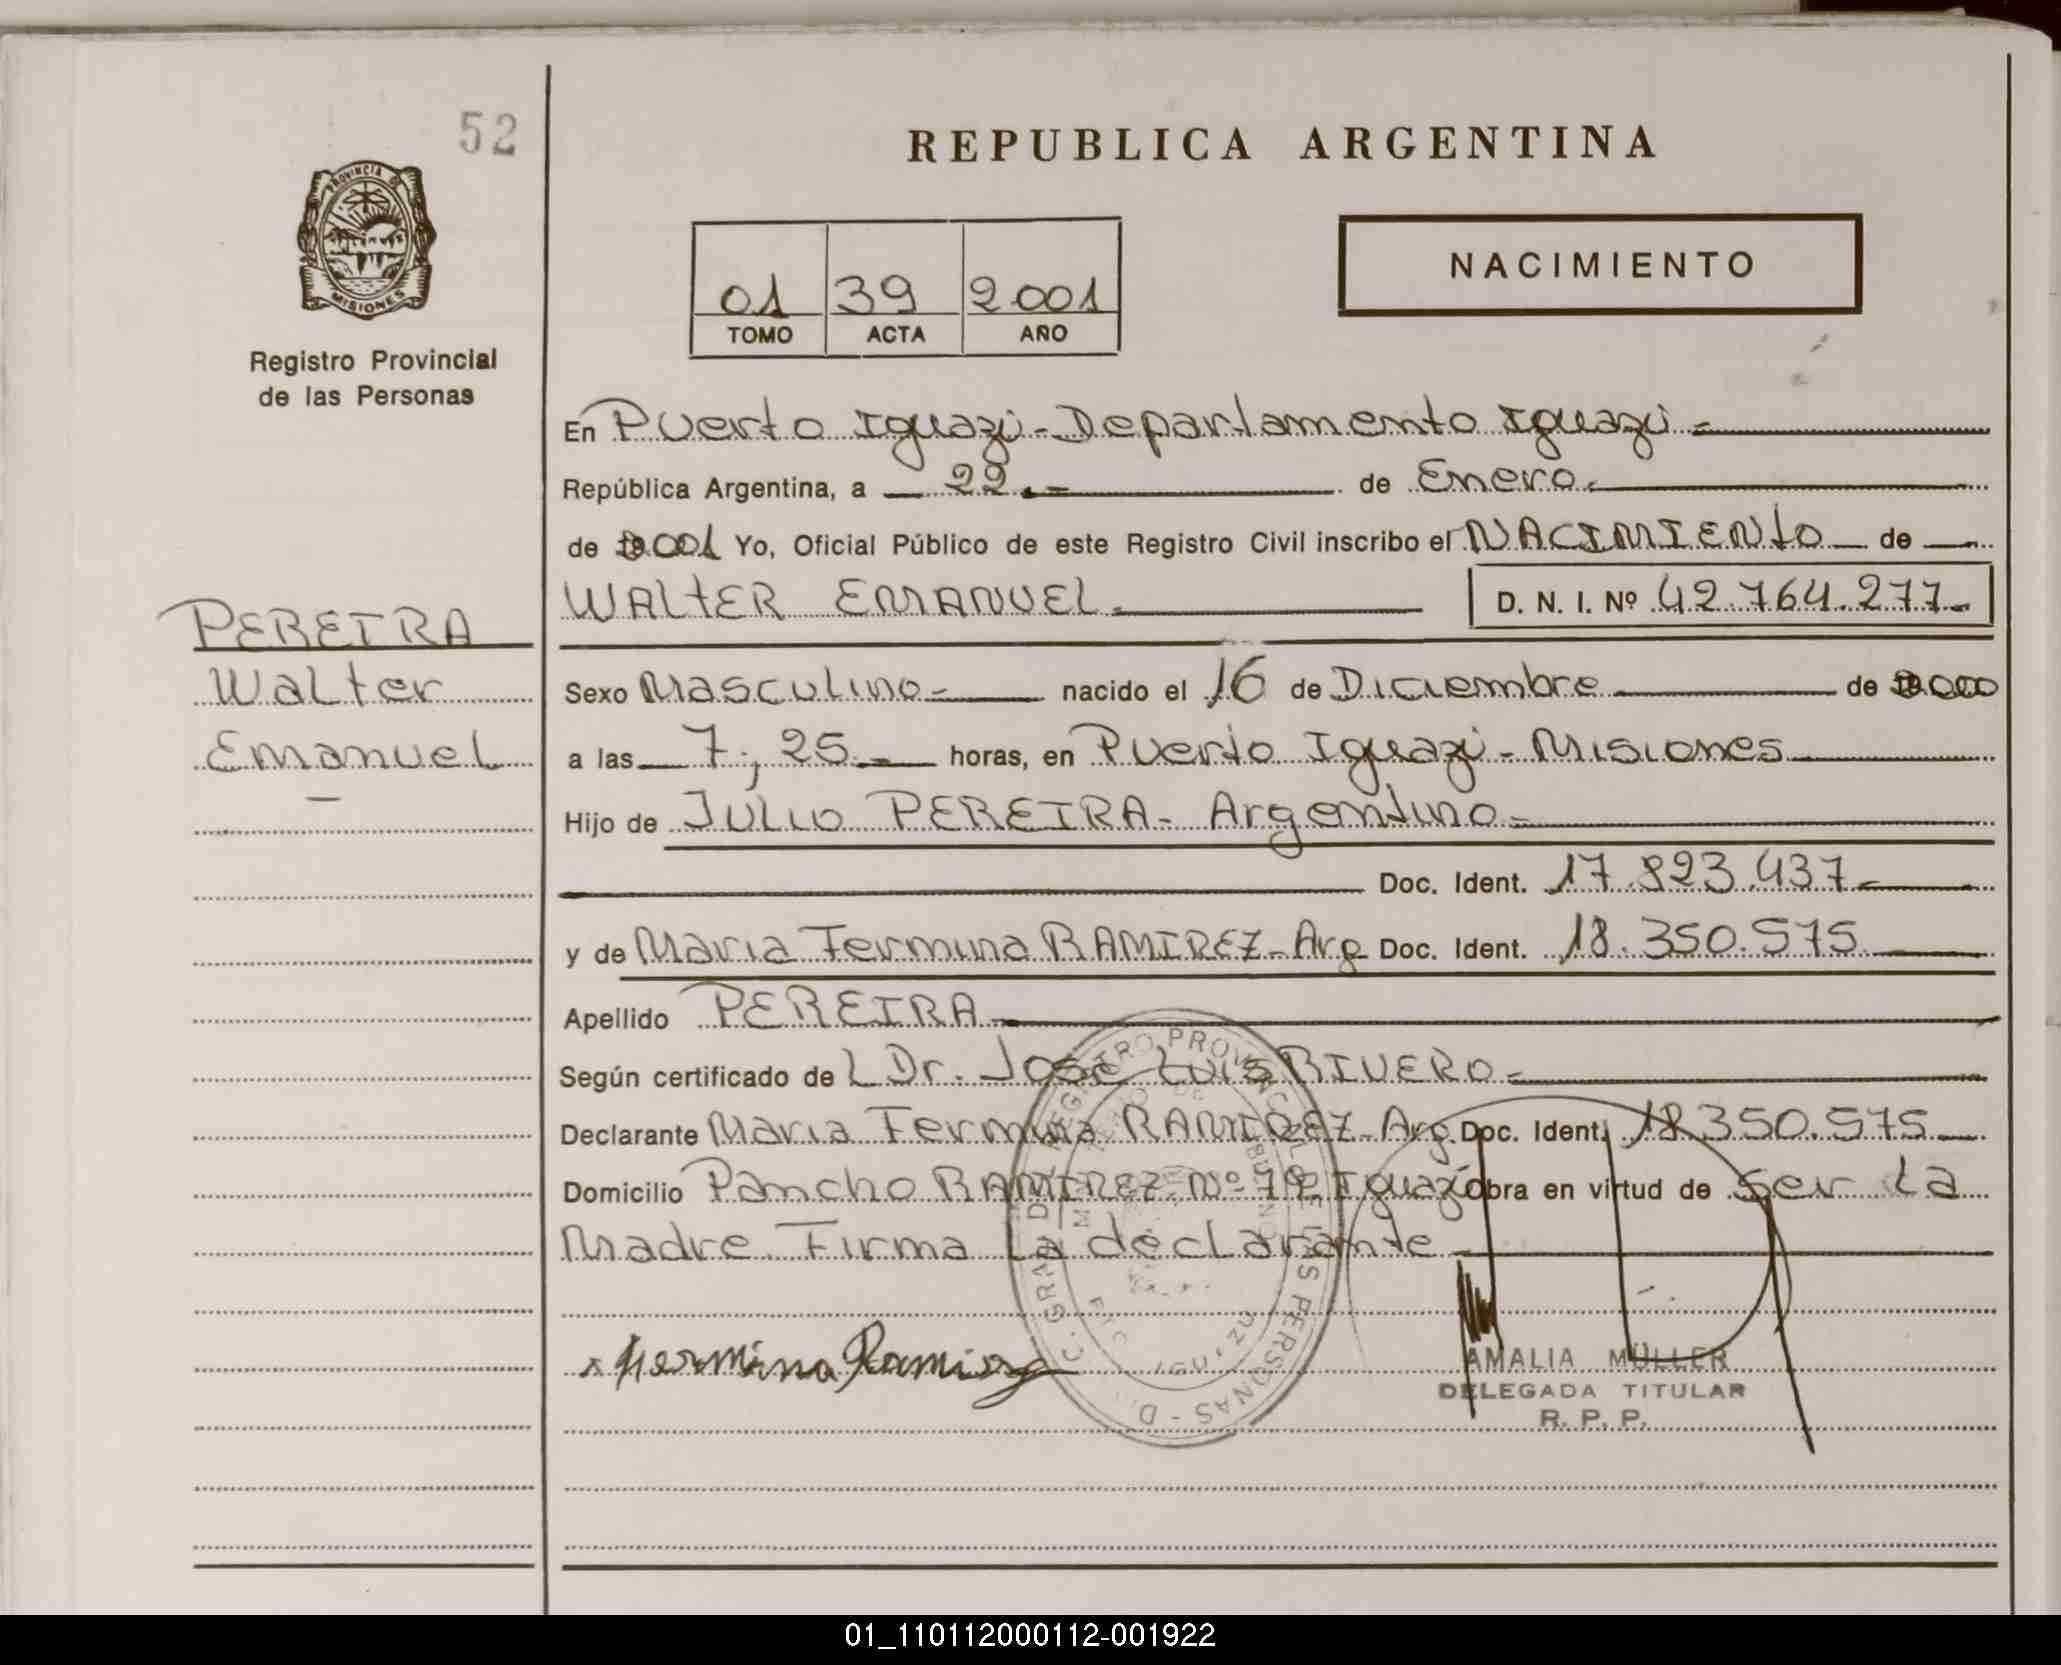 52
REPUBLICA ARGENTINA
PROVINCIA DE
MISIONES
Registro Provincial
de las Personas
01 39 2001
TOMO ACTA AÑO
NACIMIENTO
En Puerto Iguazú - Departamento Iguazú -
República Argentina, a 22.- de Enero.
de 2001 Yo, Oficial Público de este Registro Civil inscribo el NACIMIENTO de
WALTER EMANUEL. D. N. I. Nº 42.764.277-
PEREIRA
Walter
Emanuel
Sexo Masculino- nacido el 16 de Diciembre de 2000
a las 7; 25 horas, en Puerto Iguazú - Misiones
Hijo de JULIO PEREIRA - Argentino -
Doc. Ident. 17.823.437-
y de Maria Fermina RAMIREZ - Arg Doc. Ident. 18.350.575
Apellido PEREIRA
Según certificado de L Dr. José Luis RIVERO-
Declarante Maria Fermina RAMIREZ - Arg. Doc. Ident. 18.350.575
Domicilio Pancho RAMIREZ Nº Iguazú Obra en virtud de ser la
Madre. Firma la declarante
REGISTRO PROVINCIAL DE LAS PERSONAS
x Ramirez
AMALIA MULLER
DELEGADA TITULAR
R. P. P.
01_110112000112-001922